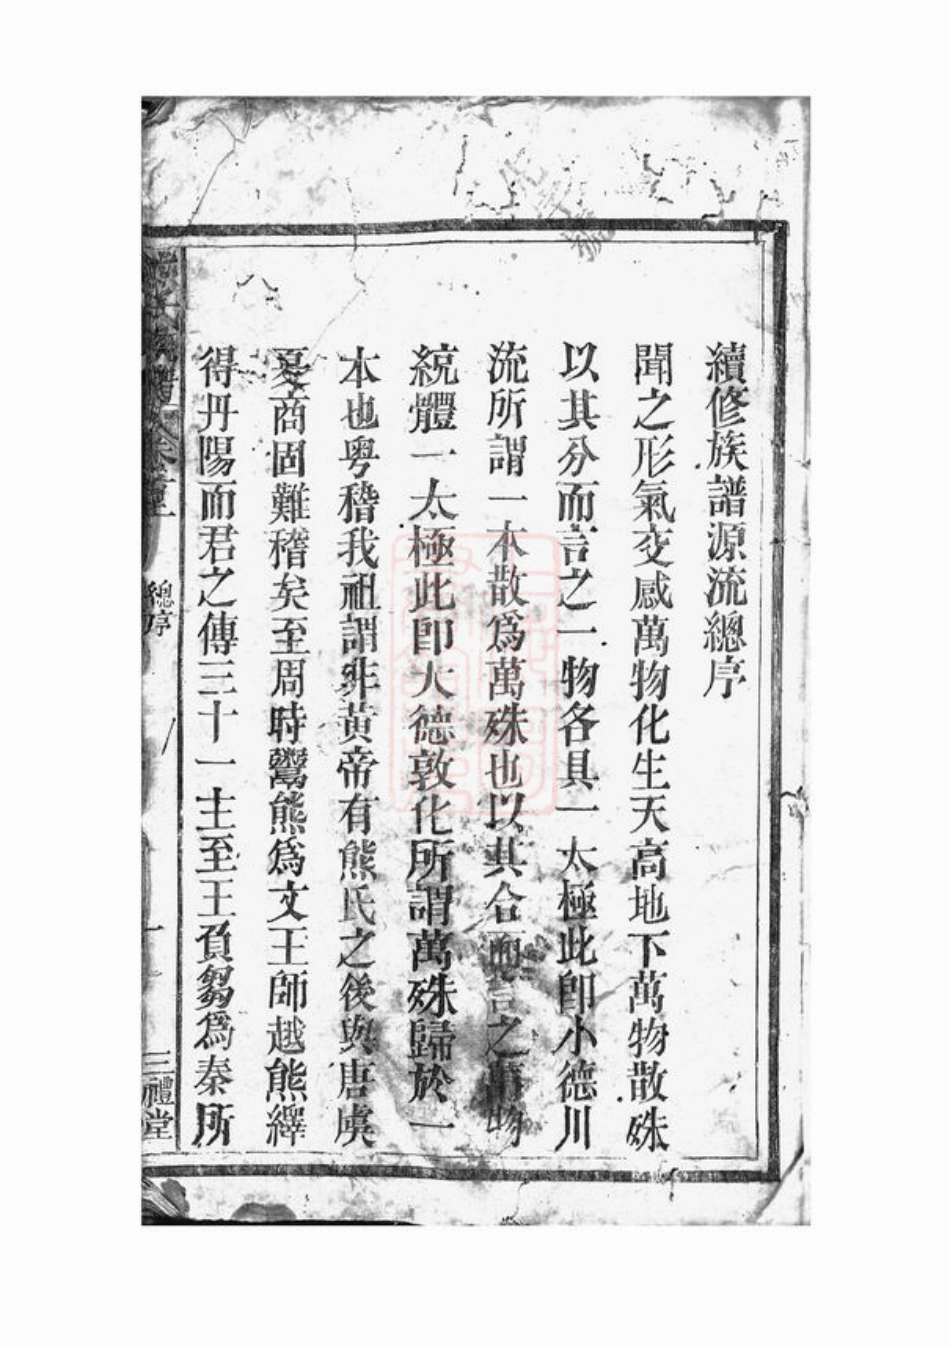 續修族譜源流總序
聞之形氣交感萬物化生天高地下萬物散殊
以其分而言之一物各具一太極此卽小德川
流所謂一本散爲萬殊也以其合而言之萬物
統體一太極此卽大德敦化所謂萬殊歸於一
本也粤稽我祖謂非黃帝有熊氏之後與唐虞
夏商固難稽矣至周時鬻熊爲文王師越熊繹
得丹陽而君之傳三十一主至王負芻爲秦所
總序
一
三禮堂